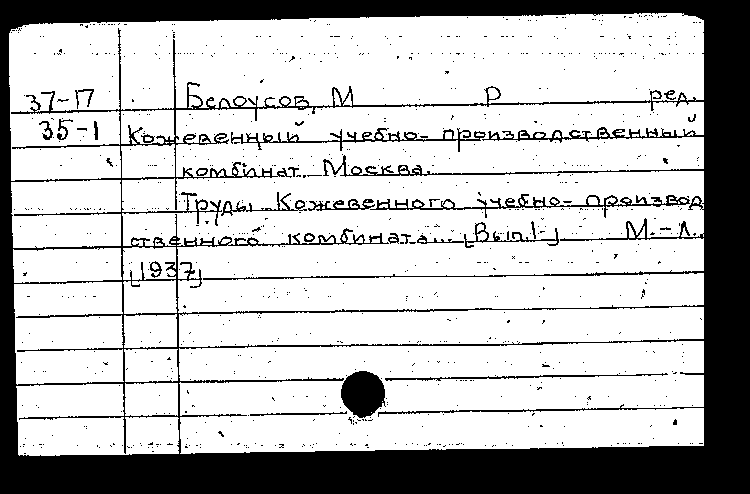 37-17 Белоусов, М Р ред.
35-1 Кожевенный учебно- производственный
комбинат. Москва.
Труды Кожевенного учебно- производ
ственного комбината... [Вып.1-] М.-Л.
[1937]